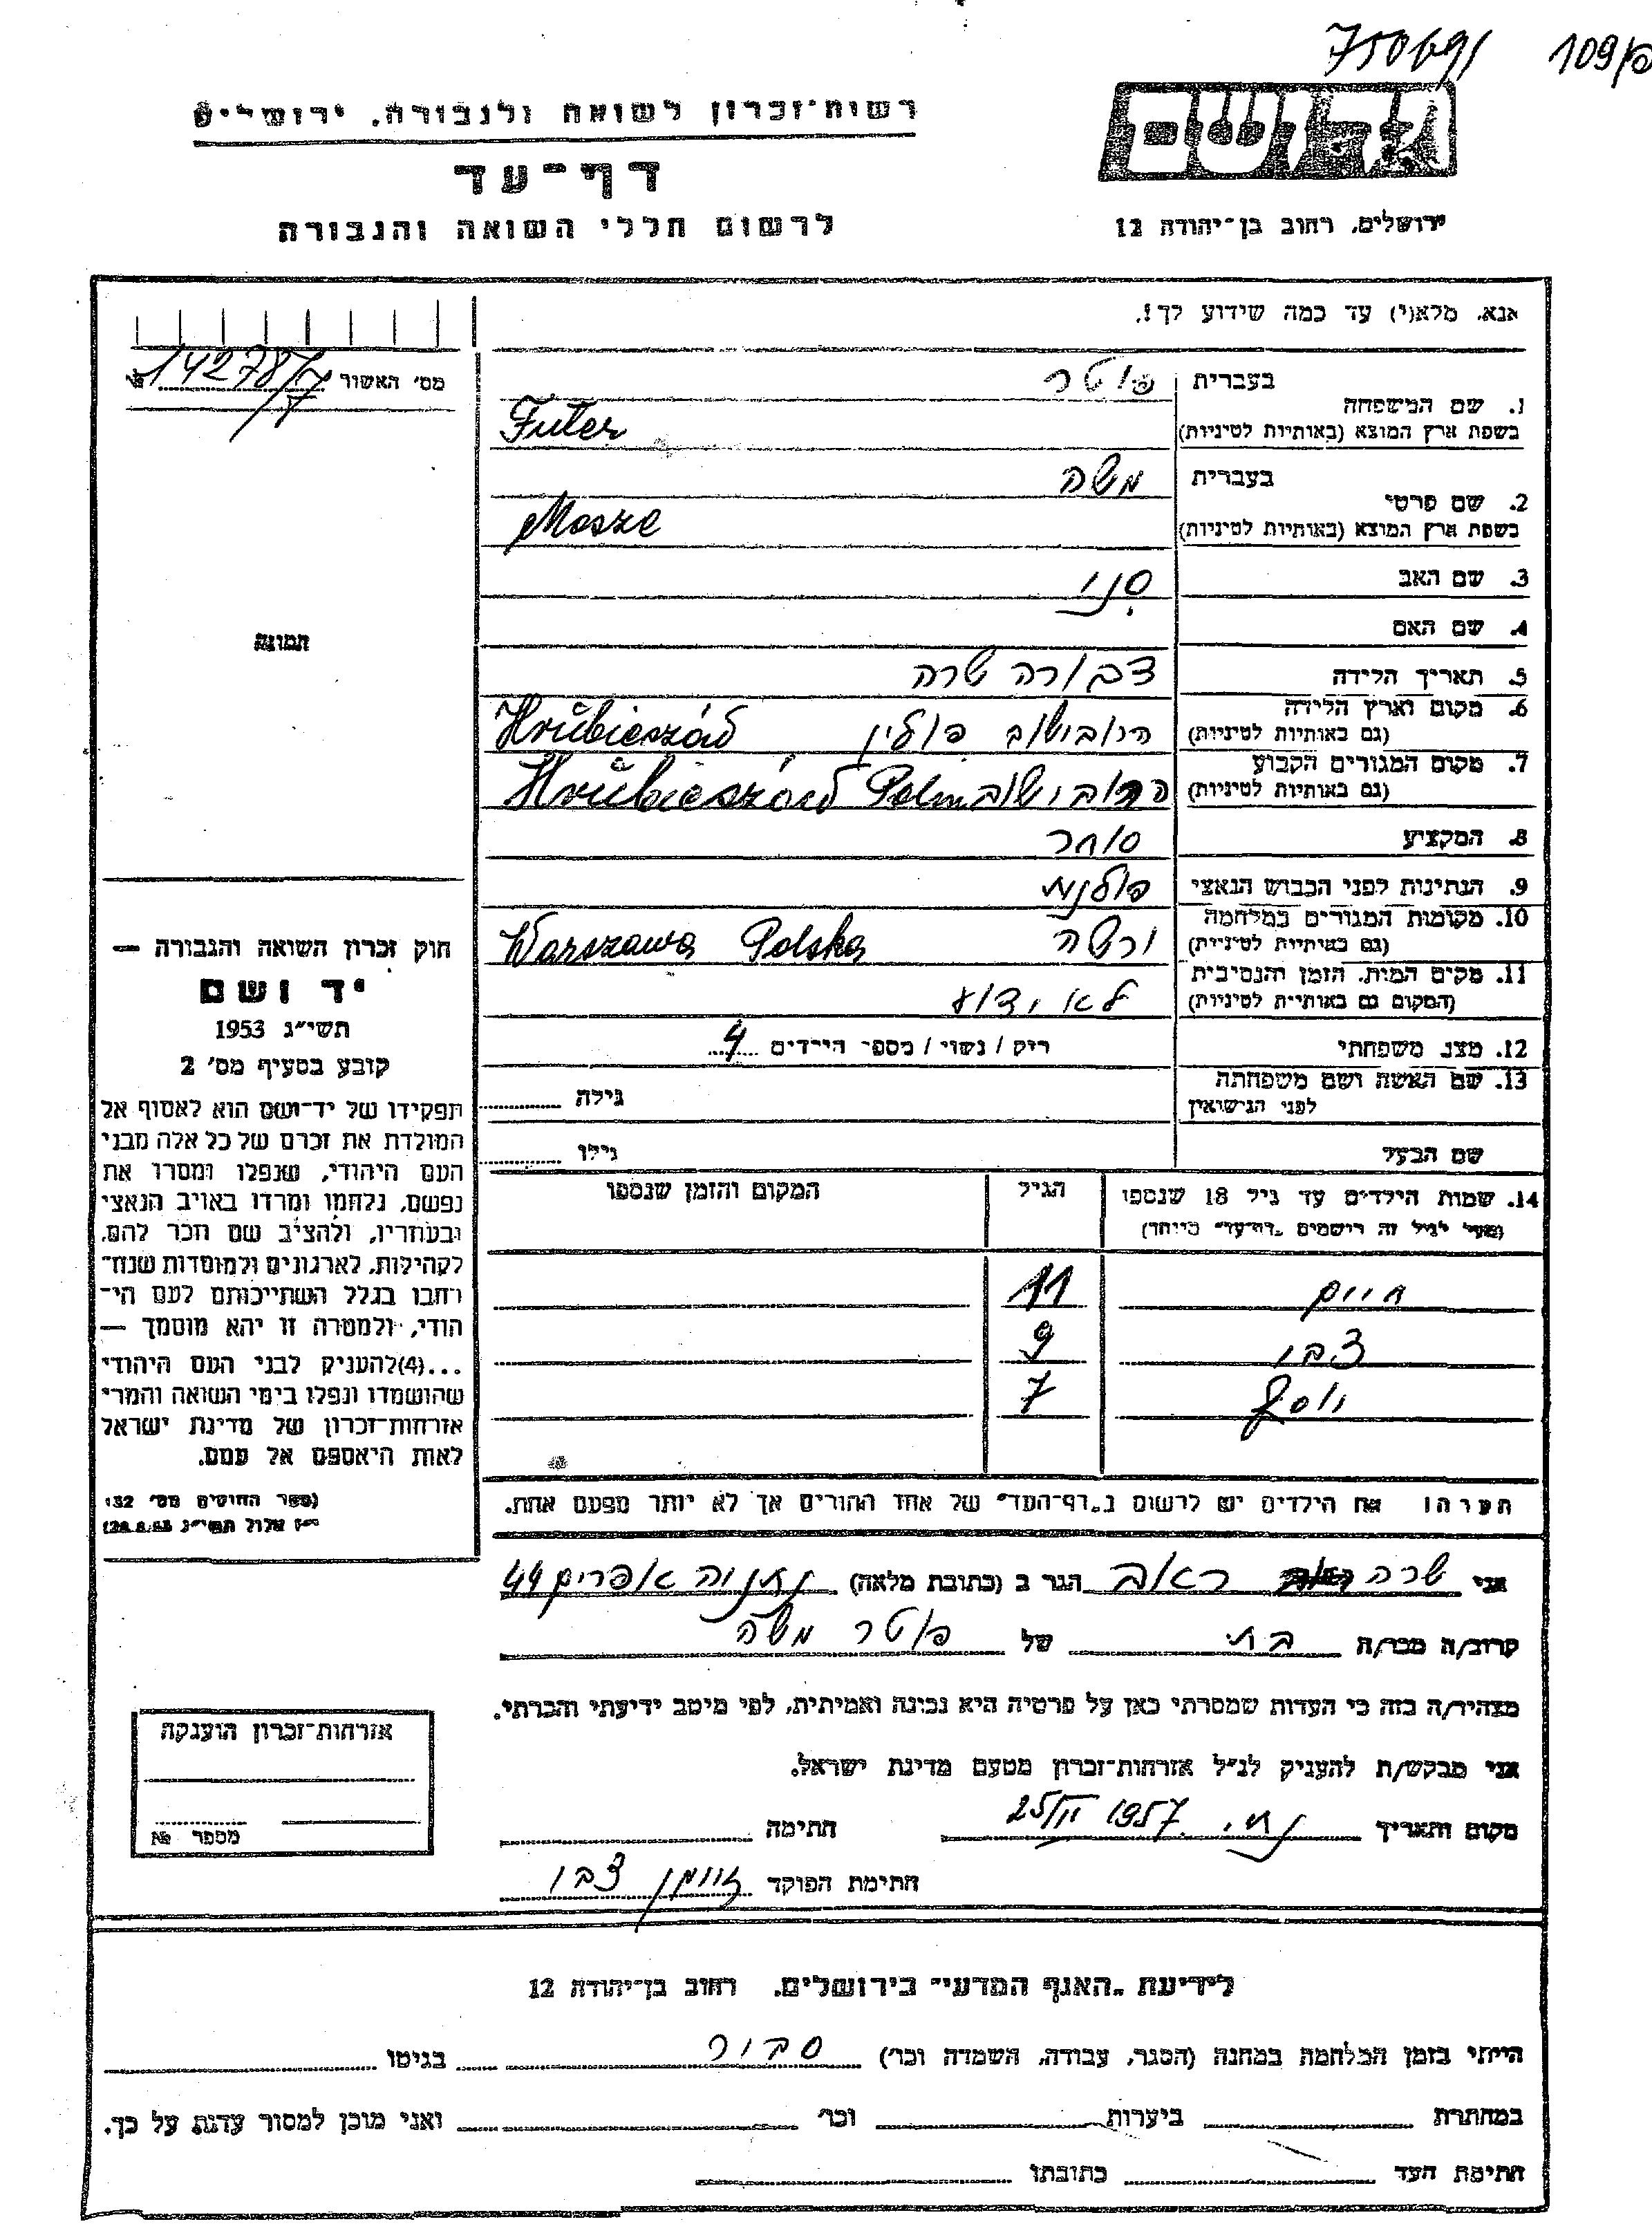 750691 109/פ
רשות-זכרון לשואה ולגבורה, ירושלים
דף-עד
לרשום חללי השואה והגבורה
ירושלים, רחוב בן-יהודה 12
אנא, מלא(י) עד כמה שידוע לך!.
מס' האשור 14278/7 №
1. שם המשפחה
בעברית פוטר
בשפת ארץ המוצא (באותיות לטיניות) Futer
2. שם פרטי
בעברית משה
בשפת ארץ המוצא (באותיות לטיניות) Mosze
3. שם האב
4. שם האם
5. תאריך הלידה דבורה שרה
6. מקום וארץ הלידה
(גם באותיות לטיניות) הרובישוב פולין Hrubieszów
7. מקום המגורים הקבוע
(גם באותיות לטיניות) הרובישוב Hrubieszów
8. המקציע סוחר
9. הנתינות לפני הכבוש הנאצי פולנית
10. מקומות המגורים במלחמה
(גם באותיות לטיניות) ורשה Warszawa Polska
11. מקום המות, הזמן והנסיבות
(המקום גם באותיות לטיניות) לא ידוע
12. מצב משפחתי רוק / נשוי / מספר הילדים 4
13. שם האשה ושם משפחתה
לפני הנישואין גילה
שם הבעל גילו
14. שמות הילדים עד גיל 18 שנספו הגיל המקום והזמן שנספו
(מעל לגיל זה רושמים "דף-עד" מיוחד)
חיים 11
צבי 9
יוסף 7
הערה: את הילדים יש לרשום ב"דף-העד" של אחד ההורים אך לא יותר מפעם אחת.
תמונה
חוק זכרון השואה והגבורה —
יד ושם
תשי״ג 1953
קובע בסעיף מס' 2
תפקידו של יד-ושם הוא לאסוף אל
המולדת את זכרם של כל אלה מבני
העם היהודי, שנפלו ומסרו את
נפשם, נלחמו ומרדו באויב הנאצי
ובעוזריו, ולהציב שם וזכר להם,
לקהילות, לארגונים ולמוסדות שנח-
רבו בגלל השתייכותם לעם הי-
הודי, ולמטרה זו יהא מוסמך —
...(4)להעניק לבני העם היהודי
שהושמדו ונפלו בימי השואה והמרי
אזרחות-זכרון של מדינת ישראל
לאות היאספם אל עמם.
(ספר החוקים מס' 132
י״ז אלול תשי״ג 28.8.53)
אני שרה ראוב הגר ב (כתובת מלאה) נתניה אפרים 44
קרוב/ה מכר/ה בת של פוטר משה
מצהיר/ה בזה כי העדות שמסרתי כאן על פרטיה היא נכונה ואמיתית, לפי מיטב ידיעתי והכרתי.
אני מבקש/ת להעניק לנ״ל אזרחות-זכרון מטעם מדינת ישראל.
מקום ותאריך נת. 25/II 1957 חתימה
חתימת הפוקד זוימן צבי
אזרחות-זכרון הוענקה
מספר №
לידיעת "האגף המדעי" בירושלים, רחוב בן-יהודה 12
הייתי בזמן המלחמה במחנה (הסגר, עבודה, השמדה וכר') סביר בגיטו
במחתרת ביערות וכר' ואני מוכן למסור עדות על כך.
חתימת העד כתובתו